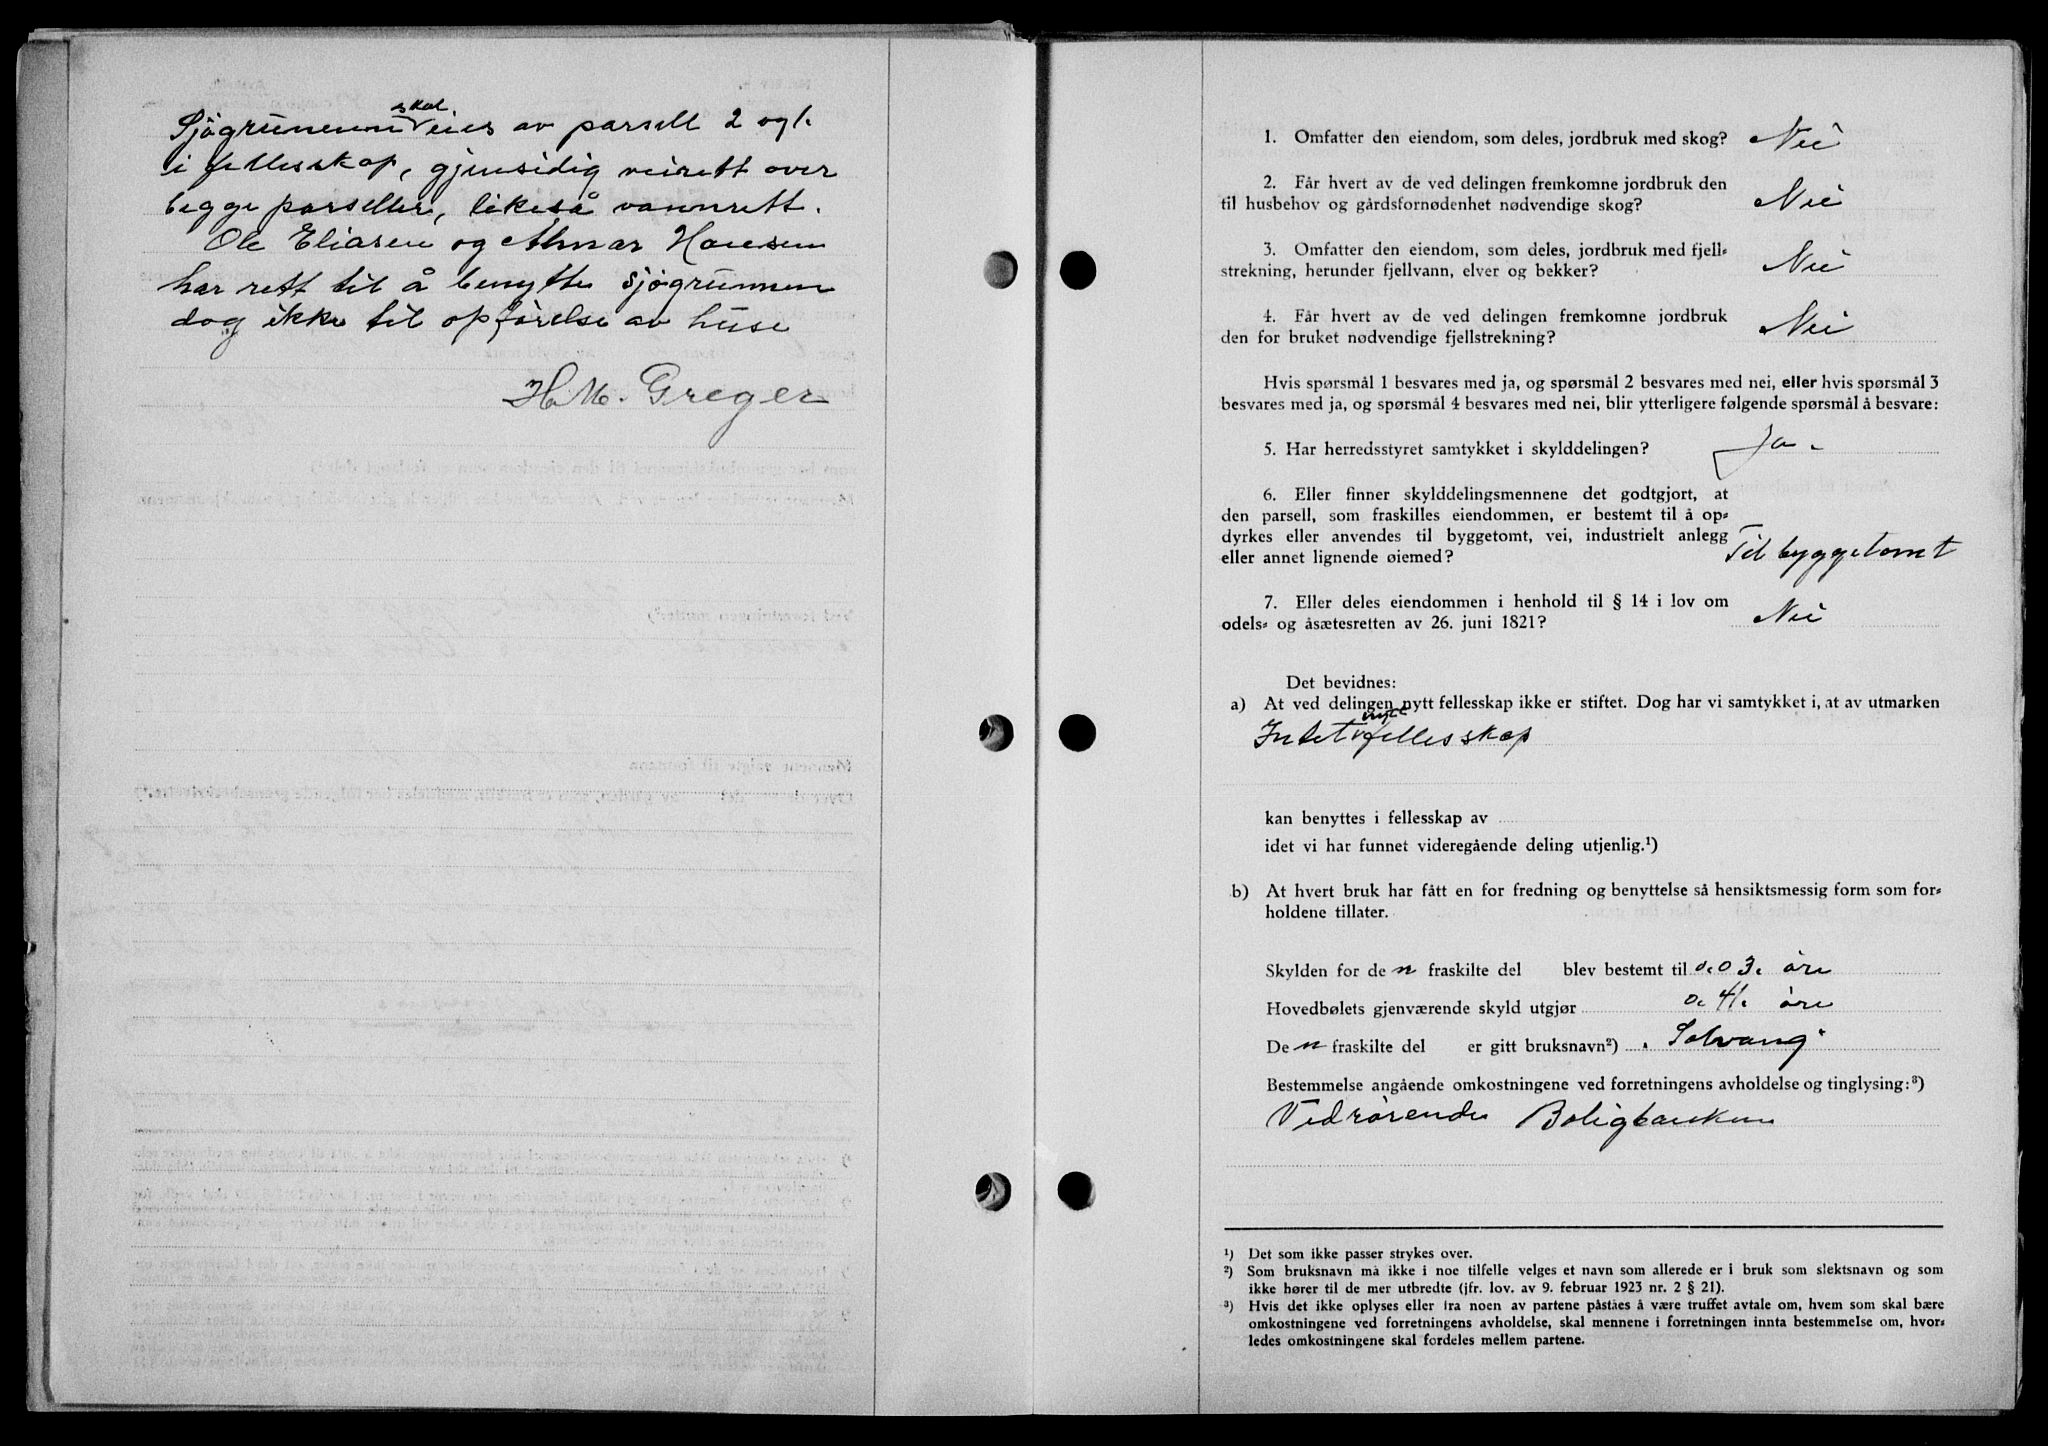 skal
Sjøgrunnenn eies av parsell 2 og 1.
i fellesskap, gjensidig veirett over
begge parseller, likeså vannrett.
Ole Eliasen og Almar Hansen
har rett til å benytte sjøgrunnen
dog ikke til opførelse av huse
H. M. Greger
1. Omfatter den eiendom, som deles, jordbruk med skog? Nei
2. Får hvert av de ved delingen fremkomne jordbruk den
til husbehov og gårdsfornødenhet nødvendige skog? Nei
3. Omfatter den eiendom, som deles, jordbruk med fjell-
strekning, herunder fjellvann, elver og bekker? Nei
4. Får hvert av de ved delingen fremkomne jordbruk
den for bruket nødvendige fjellstrekning? Nei
Hvis spørsmål 1 besvares med ja, og spørsmål 2 besvares med nei, eller hvis spørsmål 3
besvares med ja, og spørsmål 4 besvares med nei, blir ytterligere følgende spørsmål å besvare:
5. Har herredsstyret samtykket i skylddelingen? Ja.
6. Eller finner skylddelingsmennene det godtgjort, at
den parsell, som fraskilles eiendommen, er bestemt til å op-
dyrkes eller anvendes til byggetomt, vei, industrielt anlegg
eller annet lignende øiemed? Til byggetomt
7. Eller deles eiendommen i henhold til § 14 i lov om
odels- og åsætesretten av 26. juni 1821? Nei
Det bevidnes:
a) At ved delingen nytt fellesskap ikke er stiftet. Dog har vi samtykket i, at av utmarken
nytt
Intet fellesskap
kan benyttes i fellesskap av
idet vi har funnet videregående deling utjenlig.¹)
b) At hvert bruk har fått en for fredning og benyttelse så hensiktsmessig form som for-
holdene tillater.
Skylden for den fraskilte del blev bestemt til 0.03. øre
Hovedbølets gjenværende skyld utgjør 0.41. øre
Den fraskilte del er gitt bruksnavn²) Solvang
Bestemmelse angående omkostningene ved forretningens avholdelse og tinglysing:³)
Vedrørende Boligbanken
¹) Det som ikke passer strykes over.
²) Som bruksnavn må ikke i noe tilfelle velges et navn som allerede er i bruk som slektsnavn og som
ikke hører til de mer utbredte (jfr. lov. av 9. februar 1923 nr. 2 § 21).
³) Hvis det ikke oplyses eller fra noen av partene påståes å være truffet avtale om, hvem som skal bære
omkostningene ved forretningens avholdelse, skal mennene i forretningen innta bestemmelse om, hvor-
ledes omkostningene skal fordeles mellem partene.